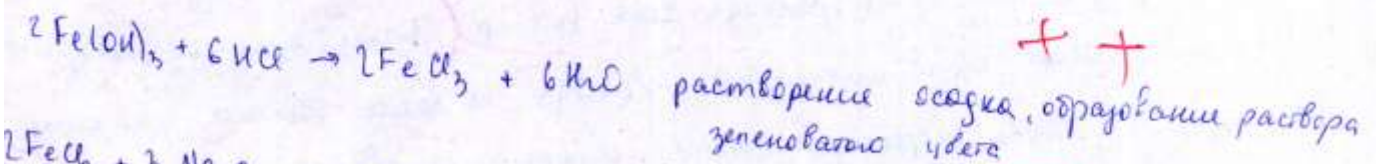 2Fe(OH)₃ + 6HCl → 2FeCl₃ + 6H₂O растворение осадка, образование раствора
зеленоватого цвета
2FeCl₃ +